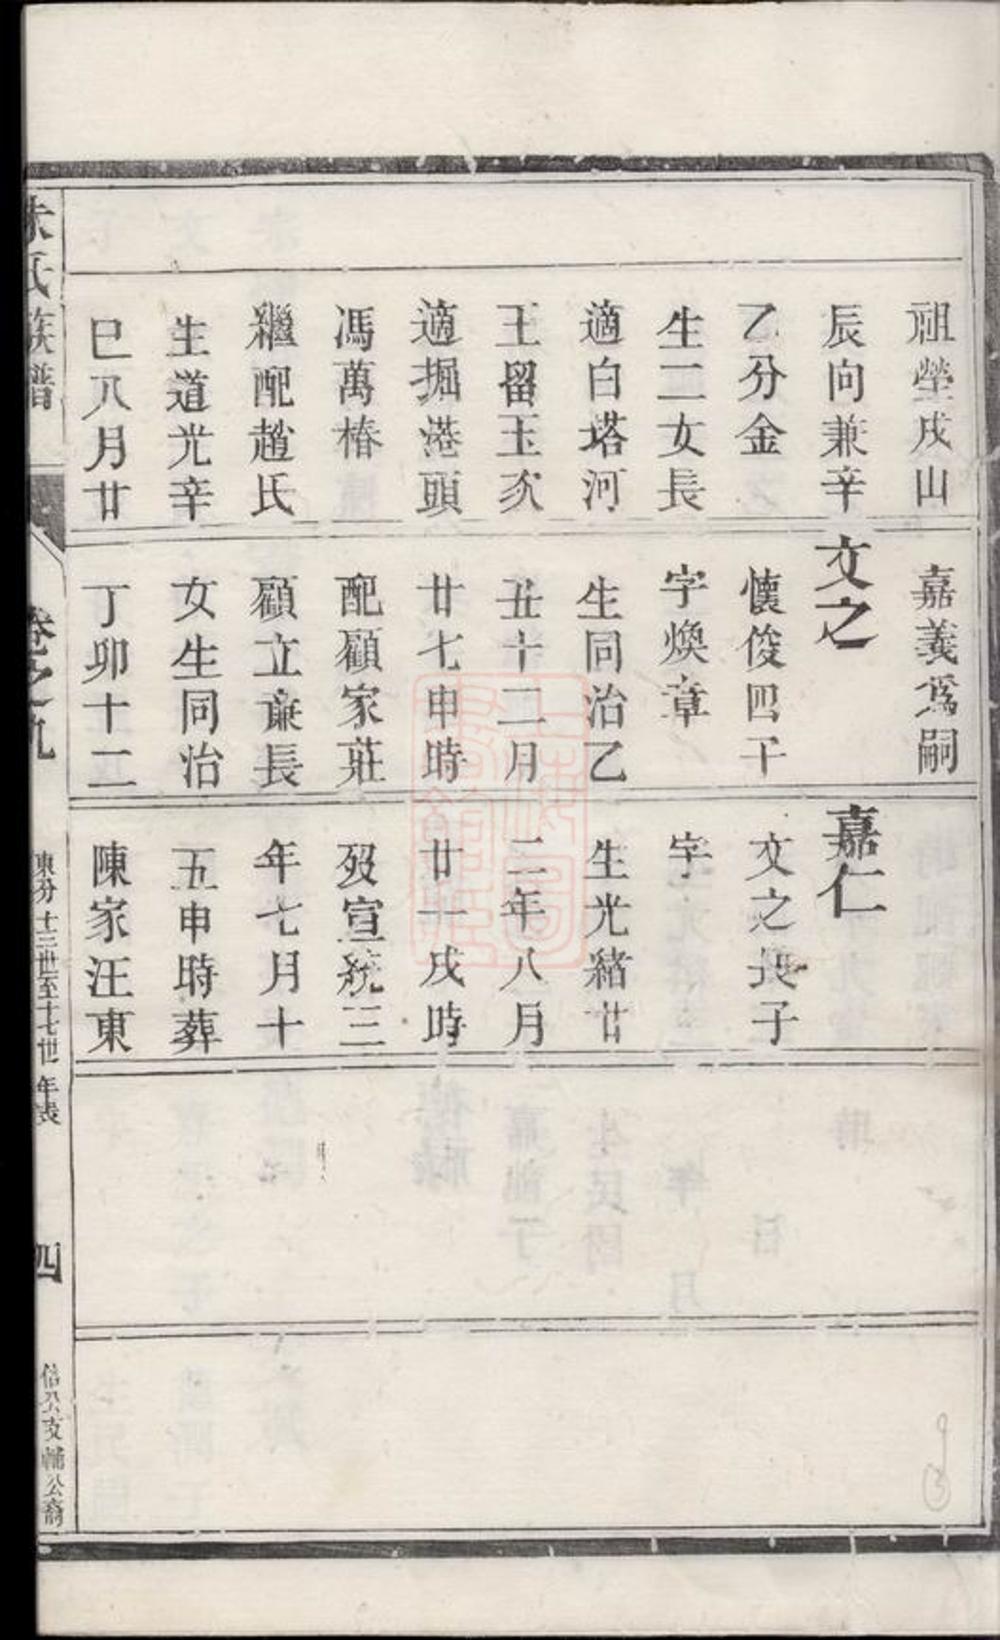 祖塋戌山
辰向兼辛
乙分金
生二女長
適白塔河
王留玉次
適掘港頭
馮萬椿
繼配趙氏
生道光辛
巳八月廿
嘉義爲嗣
文之
懷俊四子
字煥章
生同治乙
丑十二月
廿七申時
配顧家莊
顧立康長
女生同治
丁卯十二
嘉仁
文之長子
字
生光緒廿
二年八月
廿一戌時
歿宣統三
年七月十
五申時葬
陳家汪東
氏族譜
卷之九
東分十三世至十七世年表
四
信公支輔公裔